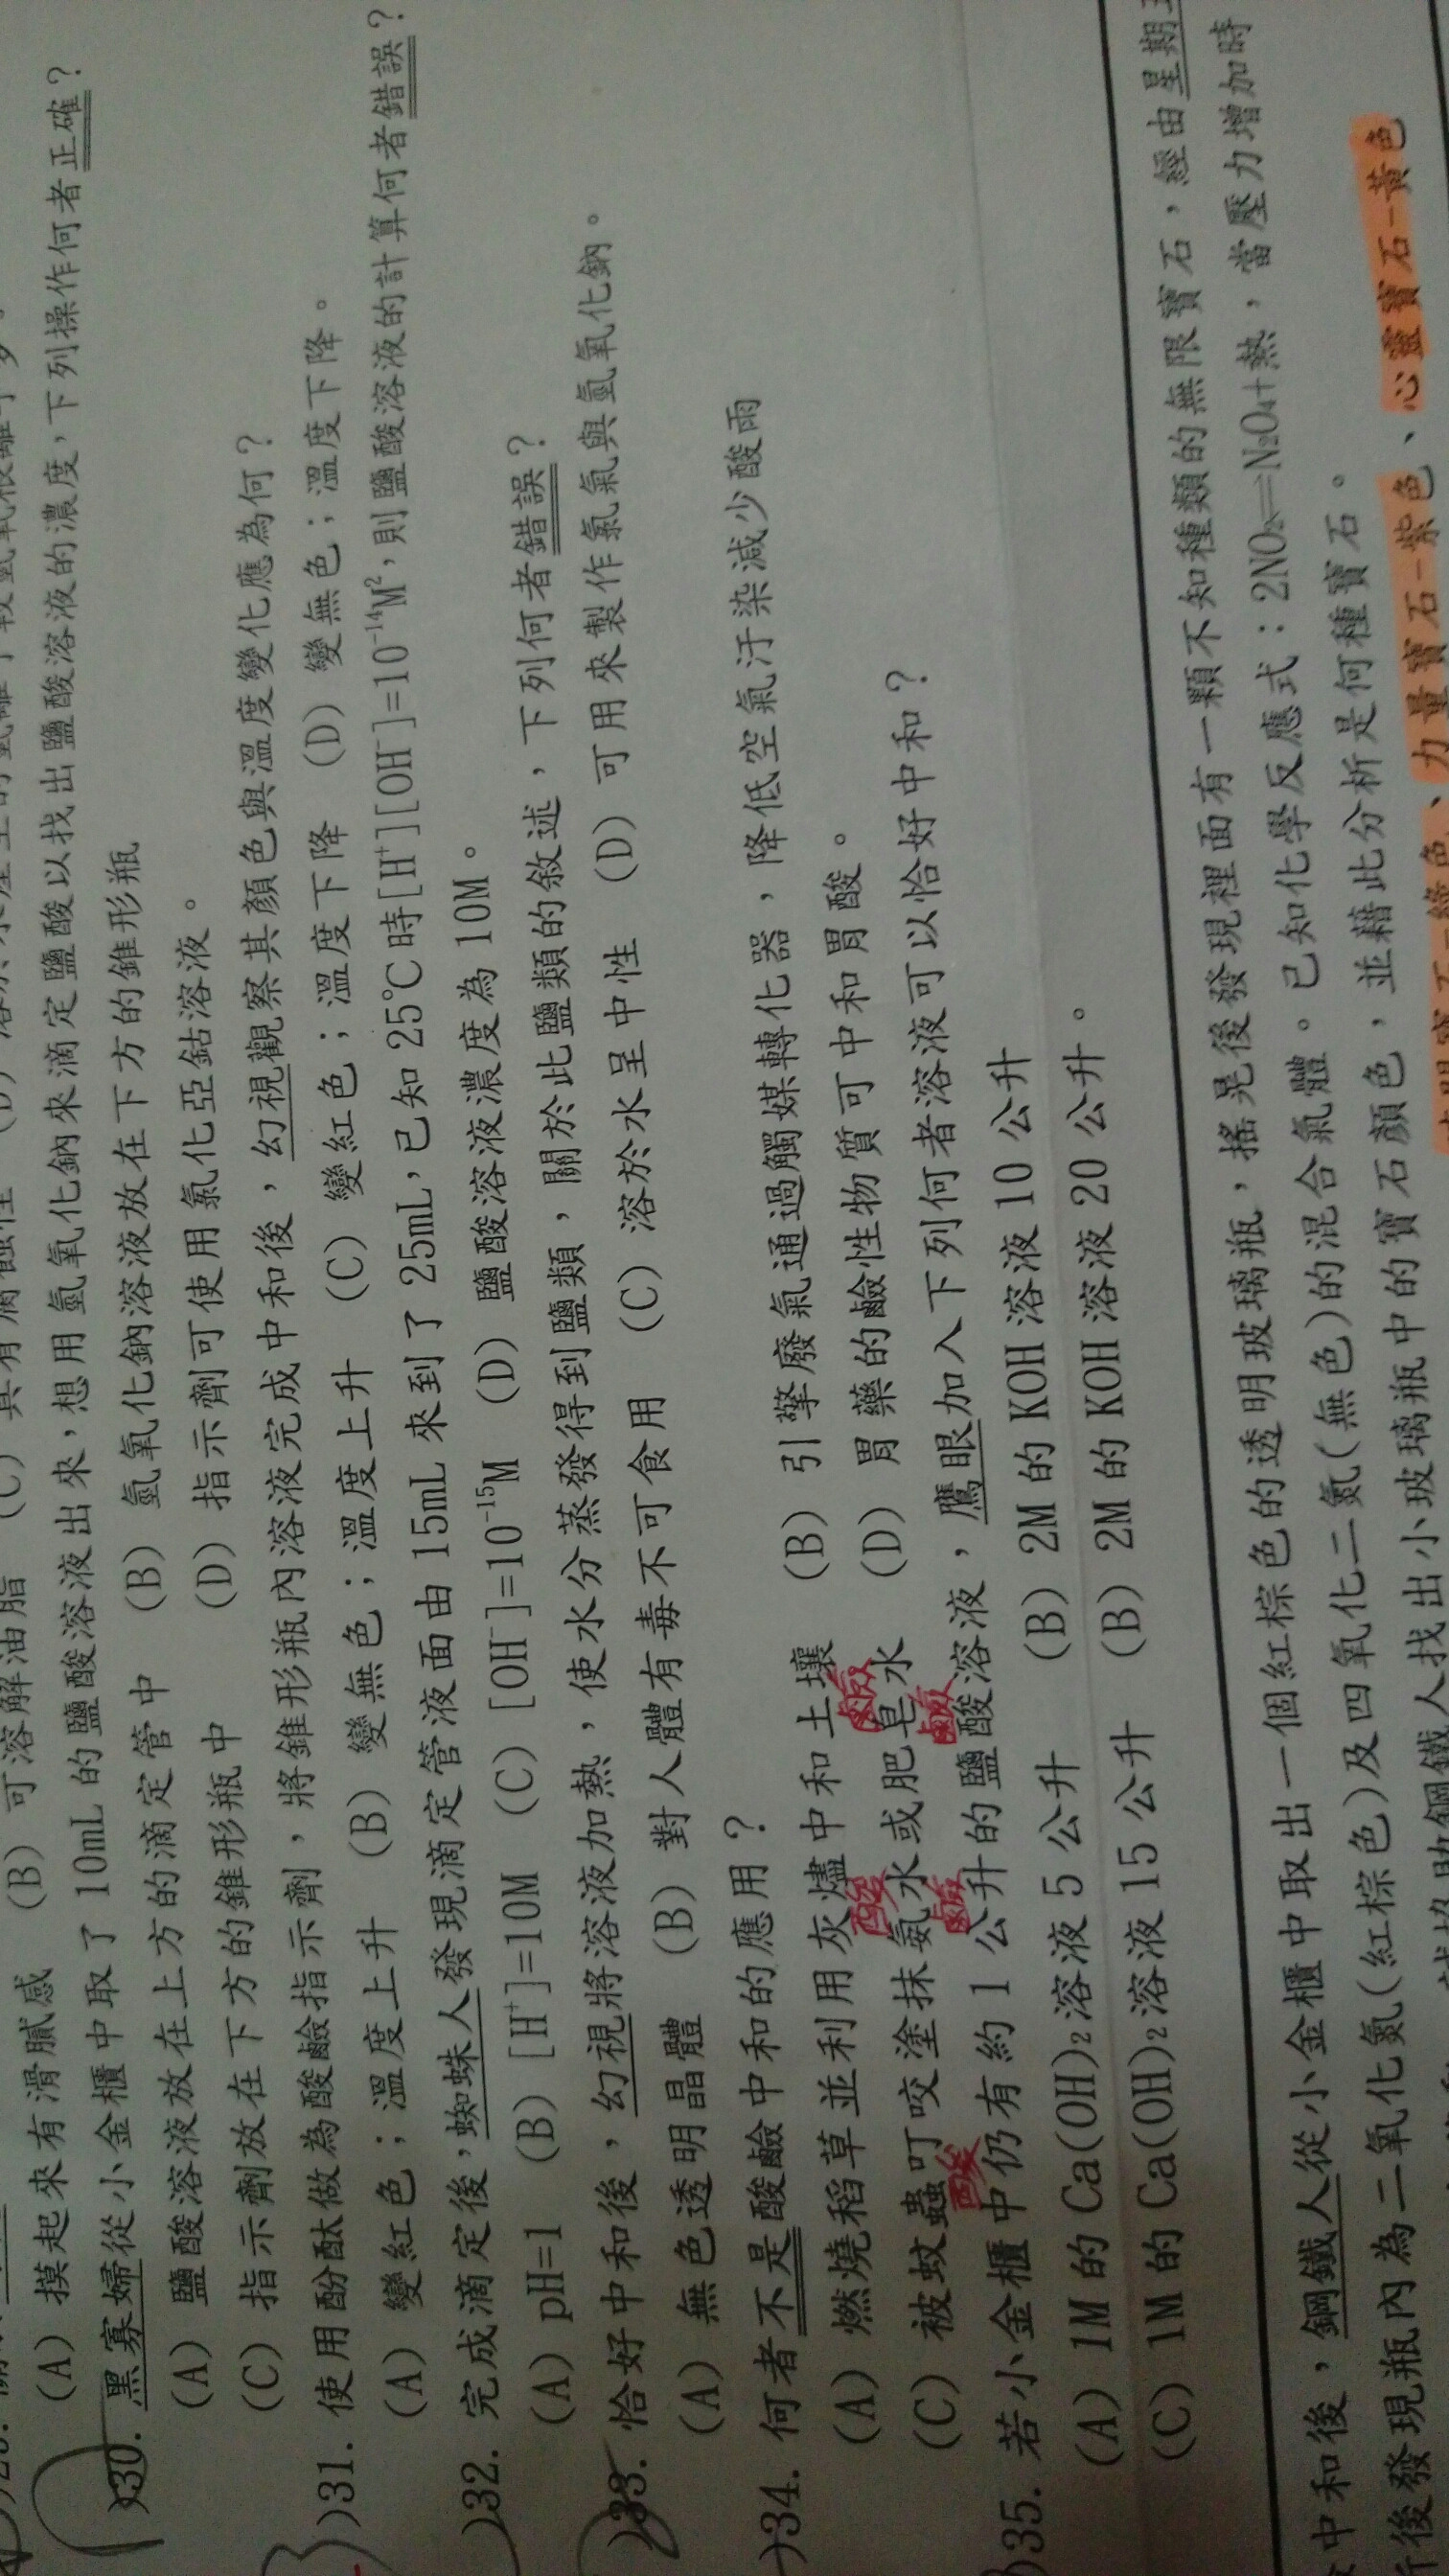 (A) 摸起來有滑膩感 (B) 可溶解油脂 (C) 具有腐蝕性
)30. 黑寡婦從小金櫃中取了 10mL 的鹽酸溶液出來,想用氫氧化鈉來滴定鹽酸以找出鹽酸溶液的濃度,下列操作何者正確?
(A) 鹽酸溶液放在上方的滴定管中 (B) 氫氧化鈉溶液放在下方的錐形瓶
(C) 指示劑放在下方的錐形瓶中 (D) 指示劑可使用氯化亞鈷溶液。
)31. 使用酚酞做為酸鹼指示劑,將錐形瓶內溶液完成中和後,幻視觀察其顏色與溫度變化應為何?
(A) 變紅色;溫度上升 (B) 變無色;溫度上升 (C) 變紅色;溫度下降 (D) 變無色;溫度下降。
)32. 完成滴定後,蜘蛛人發現滴定管液面由 15mL 來到了 25mL,已知 25℃時[H⁺][OH⁻]=10⁻¹⁴M²,則鹽酸溶液的計算何者錯誤?
(A) pH=1 (B) [H⁺]=10M (C) [OH⁻]=10⁻¹⁵M (D) 鹽酸溶液濃度為 10M。
)33. 恰好中和後,幻視將溶液加熱,使水分蒸發得到鹽類,關於此鹽類的敘述,下列何者錯誤?
(A) 無色透明晶體 (B) 對人體有毒不可食用 (C) 溶於水呈中性 (D) 可用來製作氯氣與氫氧化鈉。
)34. 何者不是酸鹼中和的應用?
(A) 燃燒稻草並利用灰燼中和土壤 (B) 引擎廢氣通過觸媒轉化器,降低空氣汙染減少酸雨
酸 鹼
(C) 被蚊蟲叮咬塗抹氨水或肥皂水 (D) 胃藥的鹼性物質可中和胃酸。
酸 鹼 鹼
)35. 若小金櫃中仍有約 1 公升的鹽酸溶液,鷹眼加入下列何者溶液可以恰好中和?
(A) 1M 的 Ca(OH)₂溶液 5 公升 (B) 2M 的 KOH 溶液 10 公升
(C) 1M 的 Ca(OH)₂溶液 15 公升 (B) 2M 的 KOH 溶液 20 公升。
中和後,鋼鐵人從小金櫃中取出一個紅棕色的透明玻璃瓶,搖晃後發現裡面有一顆不知種類的無限寶石,經由星期
後發現瓶內為二氧化氮(紅棕色)及四氧化二氮(無色)的混合氣體。已知化學反應式:2NO₂⇌N₂O₄+熱,當壓力增加時
鋼鐵人找出小玻璃瓶中的寶石顏色,並藉此分析是何種寶石。
力量寶石-紫色、心靈寶石-黃色